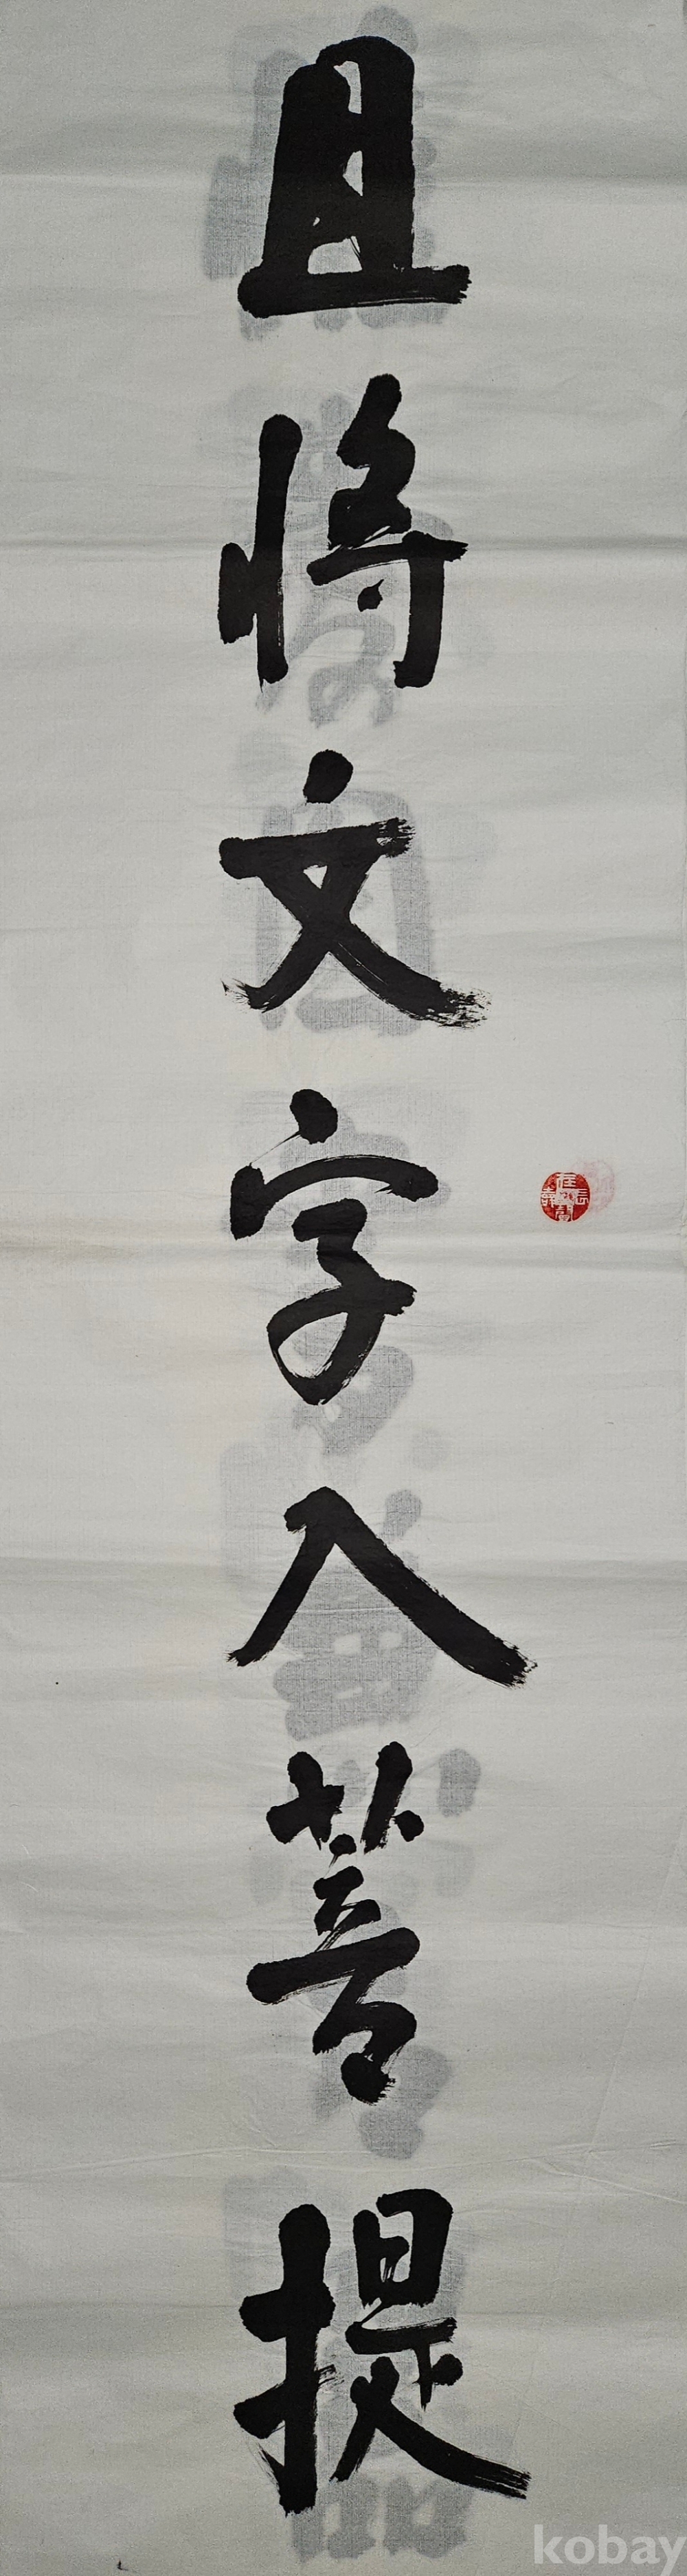 且將文字入菩提
kobay